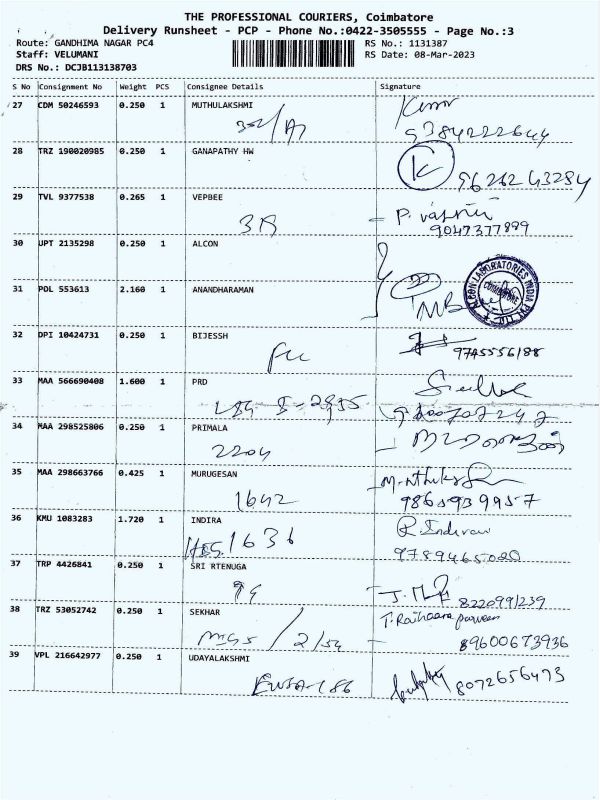 THE PROFESSIONAL COURIERS, Coimbatore
Delivery Runsheet - PCP - Phone No.:0422-3505555 - Page No.:3
Route: GANDHIMA NAGAR PC4 RS No.: 1131387
Staff: VELUMANI RS Date: 08-Mar-2023
DRS No.: DCJB113138703
S No Consignment No Weight PCS Consignee Details Signature
27 CDM 50246593 0.250 1 MUTHULAKSHMI
302/A7 9384222644
28 TRZ 190020985 0.250 1 GANAPATHY HW
K 9626243284
29 TVL 9377538 0.265 1 VEPBEE
3A 9047377899
30 UPT 2135298 0.250 1 ALCON
31 POL 553613 2.160 1 ANANDHARAMAN
ALCON LABORATORIES INDIA PVT LTD
COIMBATORE
32 DPI 10424731 0.250 1 BIJESSH
9745556188
33 MAA 566690408 1.600 1 PRD
34 MAA 298525806 0.250 1 PRIMALA
2204
35 MAA 298663766 0.425 1 MURUGESAN
1642 9865939957
36 KMU 1083283 1.720 1 INDIRA
1636 9789465020
37 TRP 4426841 0.250 1 SRI RTENUGA
8220991239
38 TRZ 53052742 0.250 1 SEKHAR
T. Raihaana parveen
89600673936
39 VPL 216642977 0.250 1 UDAYALAKSHMI
8072656473